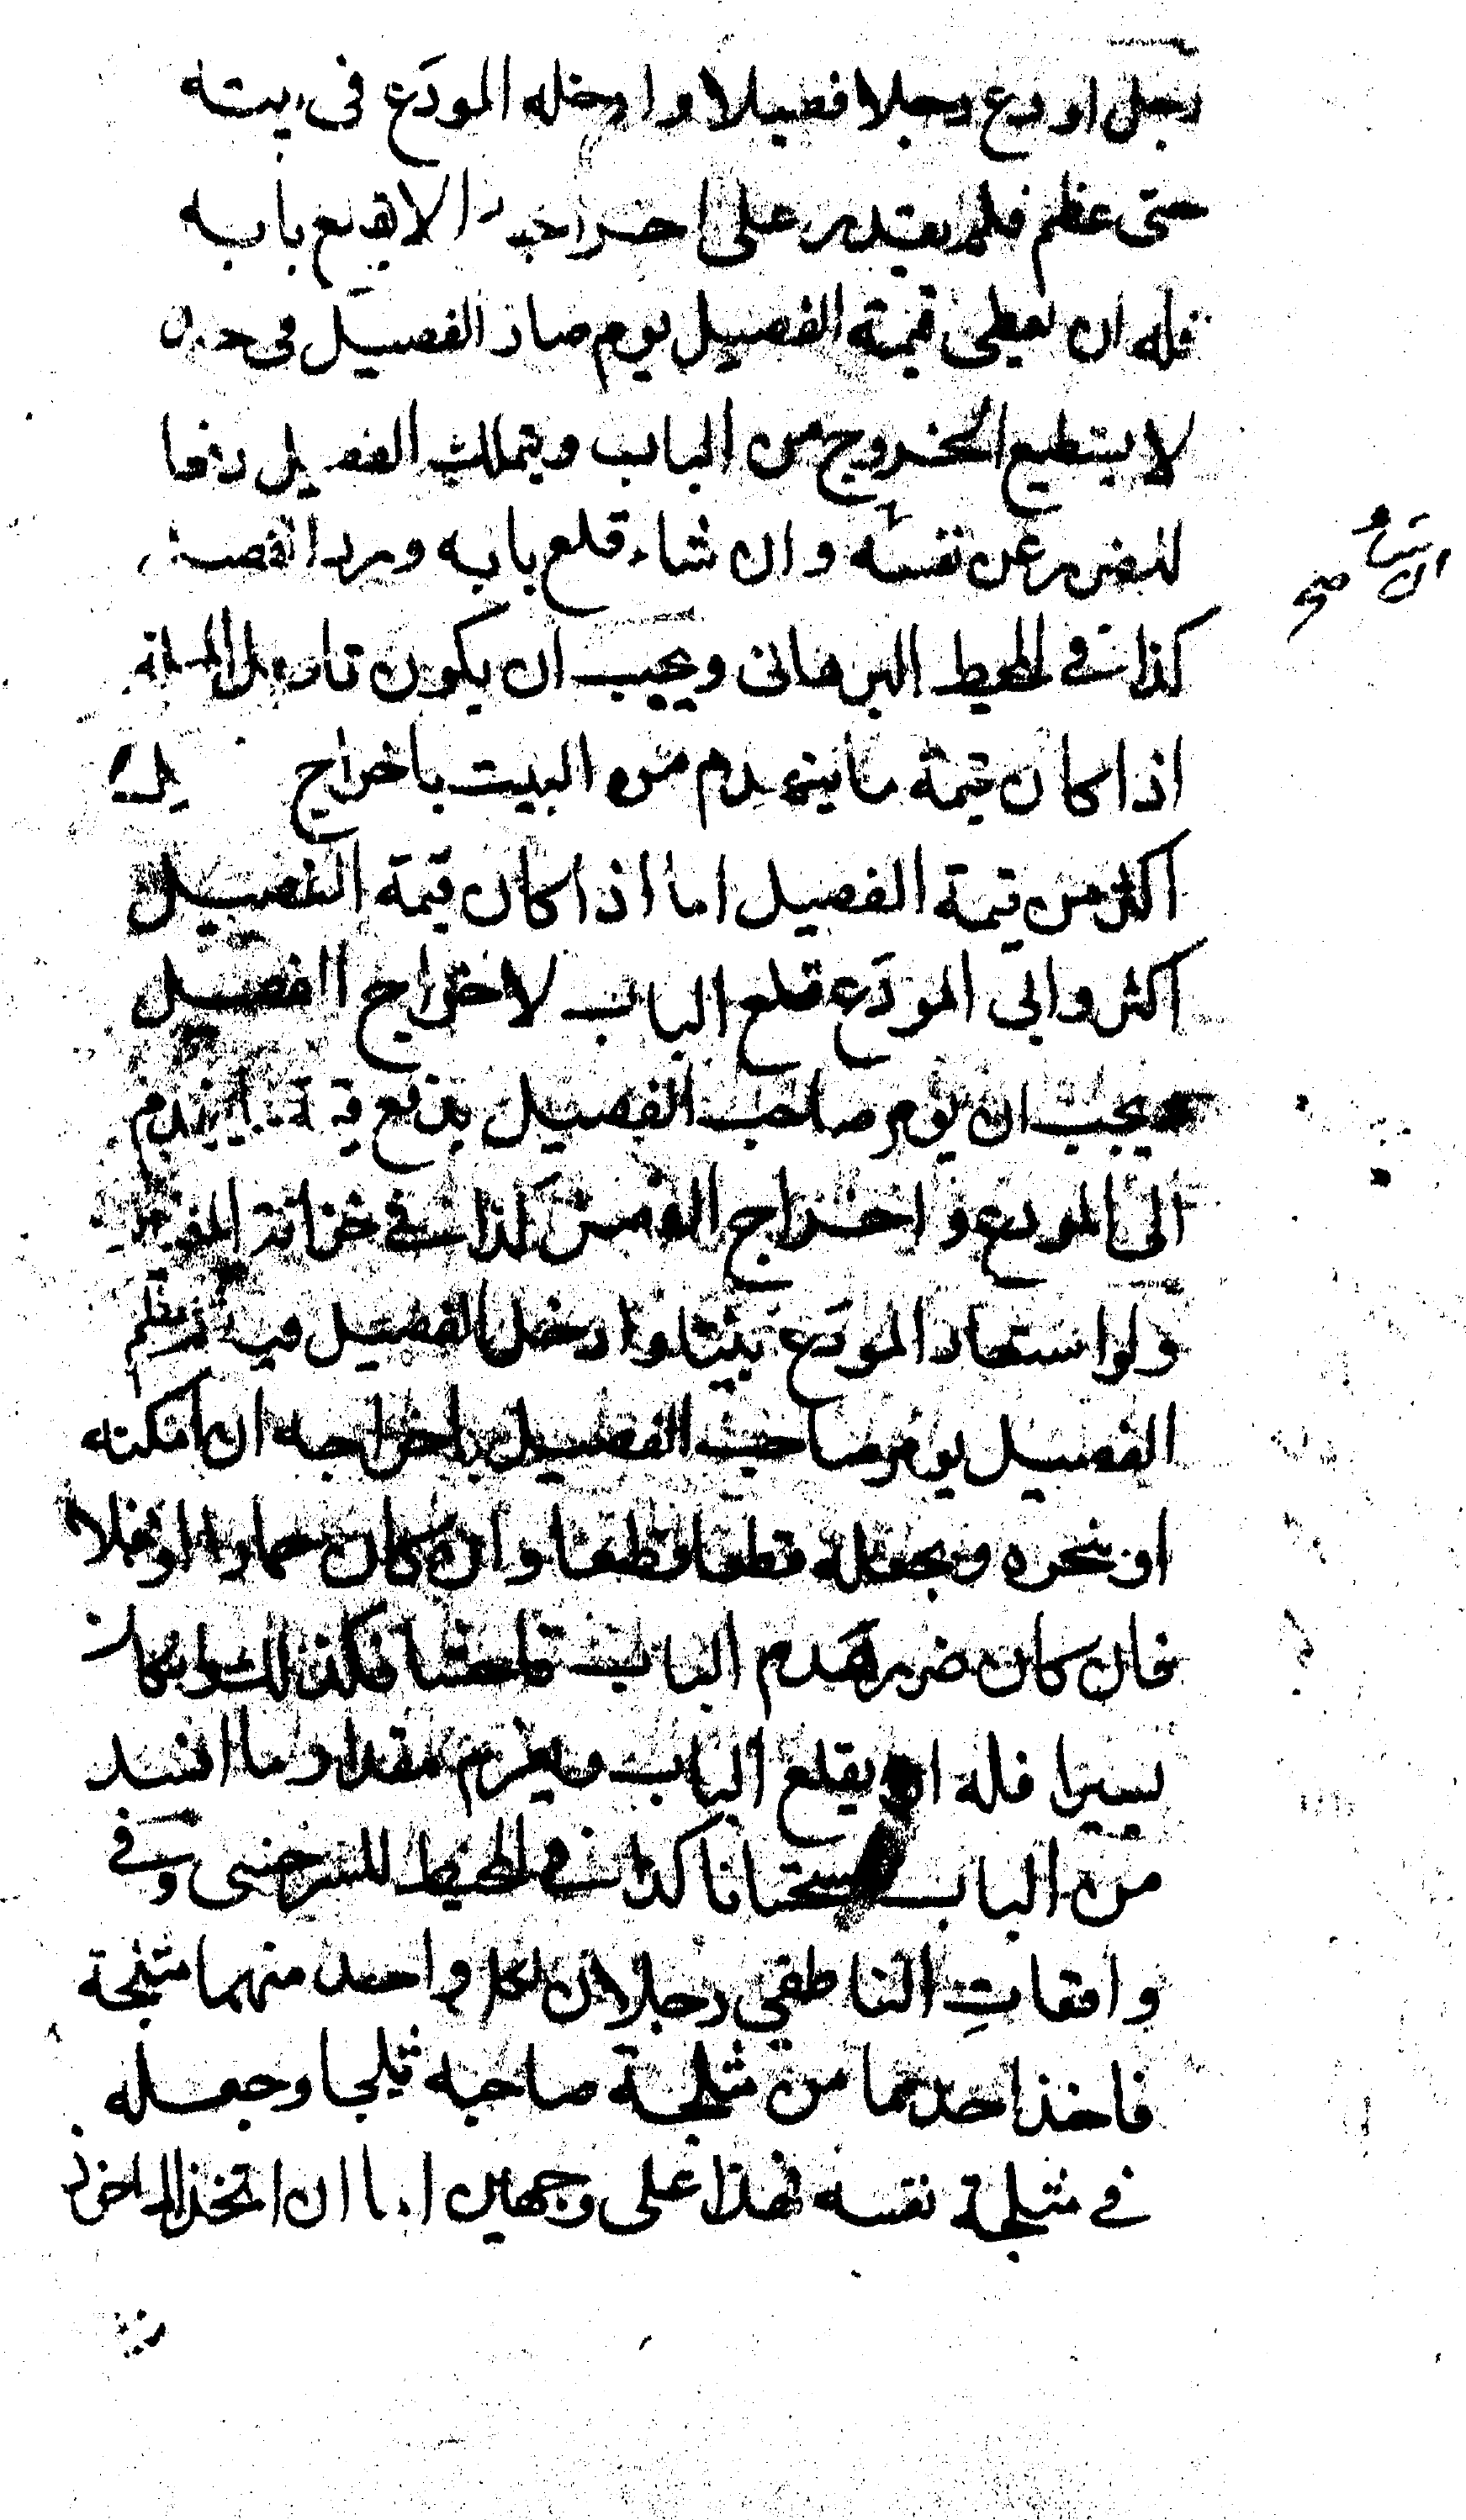 رجل اودع رجلا فصيلا وادخله المودَع فى بيته
حتى عظم فلم يقدر على اخراجه الا بقلع بابه
فله ان يعطى قيمة الفصيل يوم صار الفصيل فى حد
لا يستطيع الخروج من الباب ويتملك الفصيل دفعا
للضرر عن نفسه وان شاء قلع بابه ورد الفصيل
ان شاء صح
كذا فى المحيط البرهانى ويجب ان يكون تاويل المسئلة
اذا كان قيمة ما ينهدم من البيت باخراج
اكثر من قيمة الفصيل اما اذا كان قيمة الفصيل
اكثر وابى المودَع قلع الباب لاخراج الفصيل
يجب ان يؤمر صاحب الفصيل بدفع قيمة ما ينهدم
الى المودع واخراج الفصيل كذا فى خزانة المفتين
ولو استعار المودَع بيتا وادخل الفصيل فيه فعظم
الفصيل يؤمر صاحب الفصيل باخراجه ان امكنه
او ينحره ويجعله قطعا قطعا وان كان حمارا او بغلا
فان كان ضرر هدم الباب فاحشا فكذلك وان كان
يسيرا فله ان يقلع الباب ويغرم مقدار ما افسد
من الباب استحسانا كذا فى المحيط للسرخسى وفى
واقعاتِ الناطفى رجلان لكل واحد منهما مثلجة
فاخذ احدهما من مثلجة صاحبه ثلجا وجعله
فى مثلجة نفسه فهذا على وجهين اما ان اتخذ الماخوذ